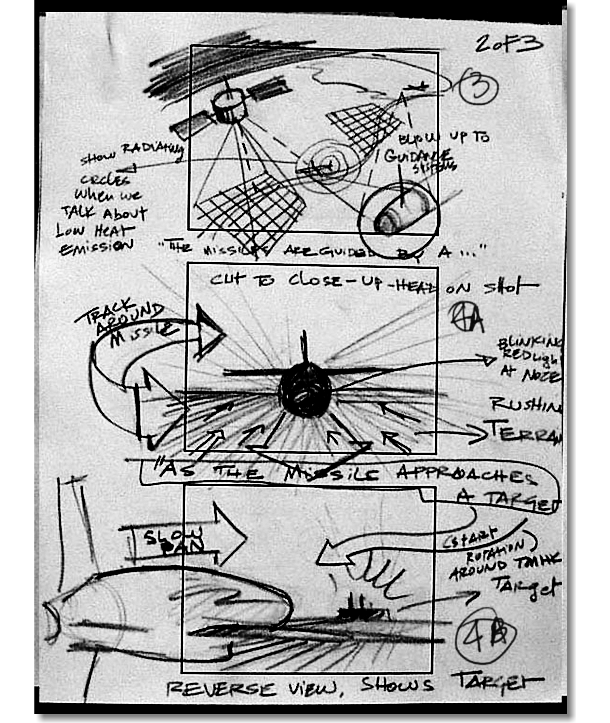 2 OF 3
3
BLOW UP TO
GUIDANCE
SHOW RADIATING
CIRCLES
WHEN WE
TALK ABOUT
LOW HEAT
EMISSION
"THE MISSILES ARE GUIDED BY A ..."
CUT TO CLOSE-UP-HEAD ON SHOT
4A
TRACK
AROUND
MISSILE
BLINKING
RED Light
AT NOZE
RUSHIN
TERRAN
"AS THE MISSILE APPROACHES
A TARGET
SLOW
PAN
(START
ROTATION)
AROUND
TARget
4B
REVERSE VIEW, SHOWS TARGET